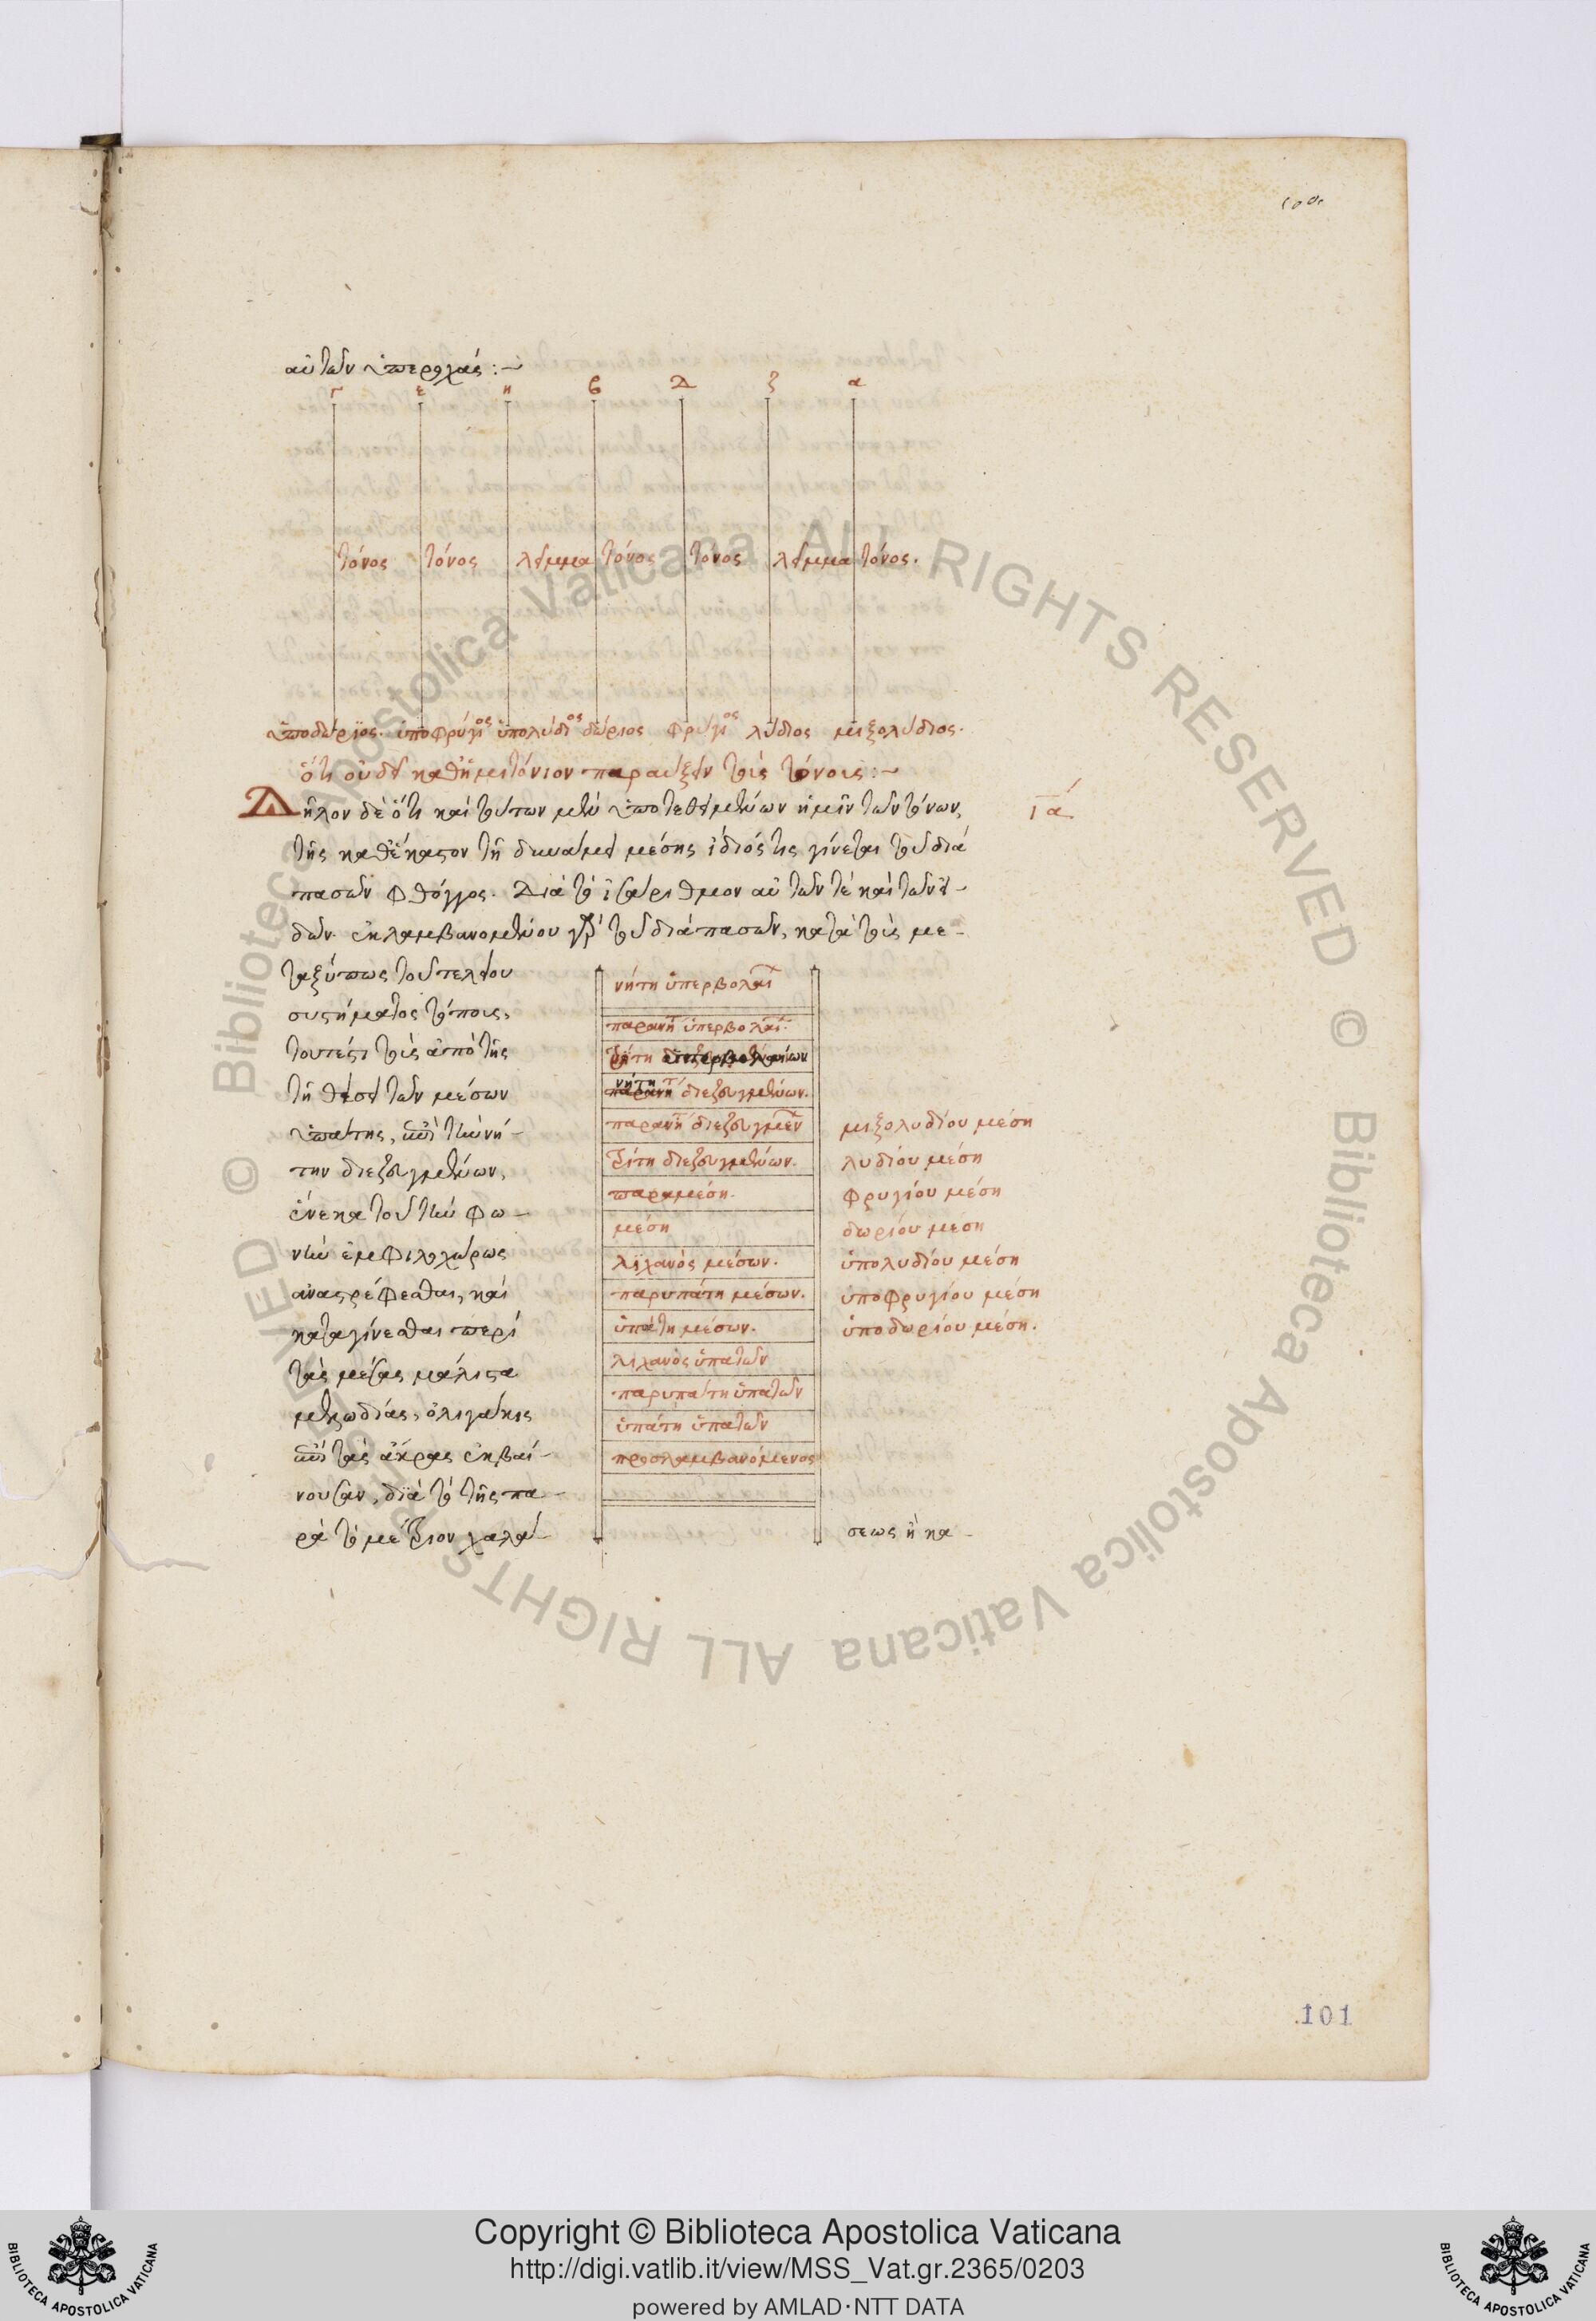 αὐτῶν ὑπεροχάς:~
γ ε η β δ ζ α
τόνος τόνος λεῖμμα τόνος τόνος λεῖμμα τόνος.
ὑποδώριος. ὑποφρύγιος ὑπολύδιος δώριος φρύγιος λύδιος μιξολύδιος.
ὅτι οὐ δεῖ καθ' ἡμιτόνιον παραύξειν τοὺς τόνους:~
Δῆλον δὲ ὅτι καὶ τούτων μὲν ὑποτεθειμένων ἡμῖν τῶν τόνων, ια
τῆς καθ' ἕκαστον τῇ δυνάμει μέσης ἴδιός τις γίνεται τοῦ διὰ
πασῶν φθόγγος. Διὰ τὸ ἰσάριθμον αὐτῶν τὲ καὶ τῶν εἰ-
δῶν. ἐκλαμβανομένου γὰρ τοῦ διὰ πασῶν, κατὰ τοὺς με-
ταξύ πως τοῦ τελείου
συστήματος τόπους,
τουτέστι τοὺς ἀπὸ τῆς
τῇ θέσει τῶν μέσων
ὑπάτης, ἐπὶ τὴν νή-
την διεζευγμένων,
ἕνεκα τοῦ τὴν φω-
νὴν ἐμφιλοχώρως
ἀναστρέφεσθαι, καὶ
καταγίνεσθαι περὶ
τὰς μέσας μάλιστα
μελωδίας, ὀλιγάκις
ἐπὶ τὰς ἄκρας ἐκβαί-
νουσαν, διὰ τὸ τῆς πα-
ρὰ τὸ μέτριον χαλά- σεως ἢ κα-
νήτη ὑπερβολαί
παρανήτ ὑπερβολαί.
τρίτη ὑπερβολαίων
νήτη διεζευγμένων.
παρανήτ διεζευγμέν μιξολυδίου μέση
τρίτη διεζευγμένων. λυδίου μέση
παραμέση. φρυγίου μέση
μέση δωρίου μέση
λιχανὸς μέσων. ὑπολυδίου μέση
παρυπάτη μέσων. ὑποφρυγίου μέση
ὑπάτη μέσων. ὑποδωρίου μέση.
λιχανὸς ὑπατῶν
παρυπάτη ὑπατῶν
ὑπάτη ὑπατῶν
προσλαμβανόμενος
101
Copyright © Biblioteca Apostolica Vaticana
http://digi.vatlib.it/view/MSS_Vat.gr.2365/0203
powered by AMLAD·NTT DATA
BIBLIOTECA APOSTOLICA VATICANA
BIBLIOTECA APOSTOLICA VATICANA
© Biblioteca Apostolica Vaticana ALL RIGHTS RESERVED © Biblioteca Apostolica Vaticana ALL RIGHTS RESERVED